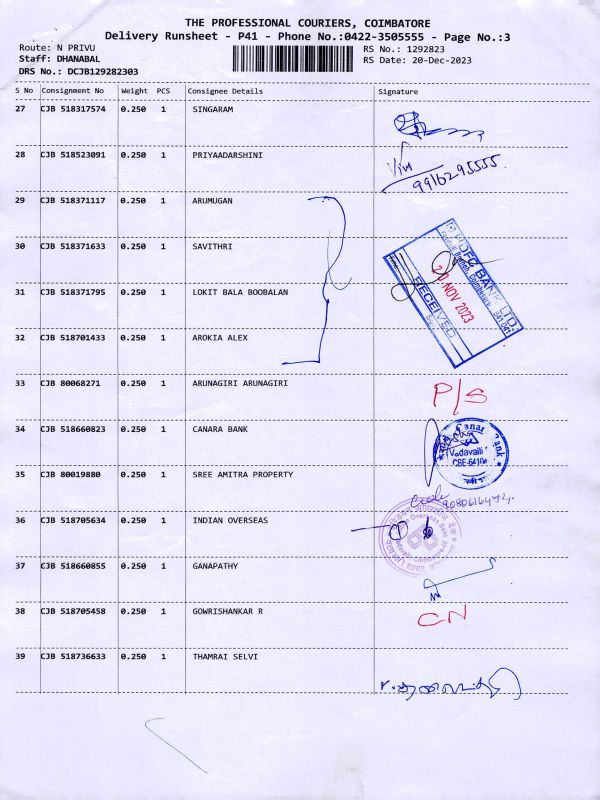 THE PROFESSIONAL COURIERS, COIMBATORE
Delivery Runsheet - P41 - Phone No.:0422-3505555 - Page No.:3
Route: N PRIVU RS No.: 1292823
Staff: DHANABAL RS Date: 20-Dec-2023
DRS No.: DCJB129282303
S No Consignment No Weight PCS Consignee Details Signature
27 CJB 518317574 0.250 1 SINGARAM
28 CJB 518523091 0.250 1 PRIYAADARSHINI
9916295555
29 CJB 518371117 0.250 1 ARUMUGAN
30 CJB 518371633 0.250 1 SAVITHRI
BANK LTD.
20 NOV 2023
RECEIVED
31 CJB 518371795 0.250 1 LOKIT BALA BOOBALAN
32 CJB 518701433 0.250 1 AROKIA ALEX
33 CJB 80068271 0.250 1 ARUNAGIRI ARUNAGIRI P/S
34 CJB 518660823 0.250 1 CANARA BANK
Vadavalli
35 CJB 80019880 0.250 1 SREE AMITRA PROPERTY
36 CJB 518705634 0.250 1 INDIAN OVERSEAS
37 CJB 518660855 0.250 1 GANAPATHY
38 CJB 518705458 0.250 1 GOWRISHANKAR R CN
39 CJB 518736633 0.250 1 THAMRAI SELVI